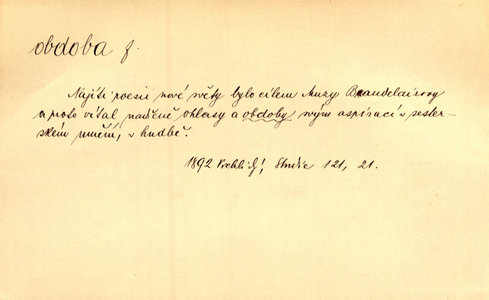 obdoba f.
Najíti poesii nové světy bylo cílem Muzy Baudelairovy
a proto vítal nadšeně ohlasy a obdoby svým aspirací v sester-
ském umění, v hudbě.
1892 Vrchlický, Studie 121, 21.